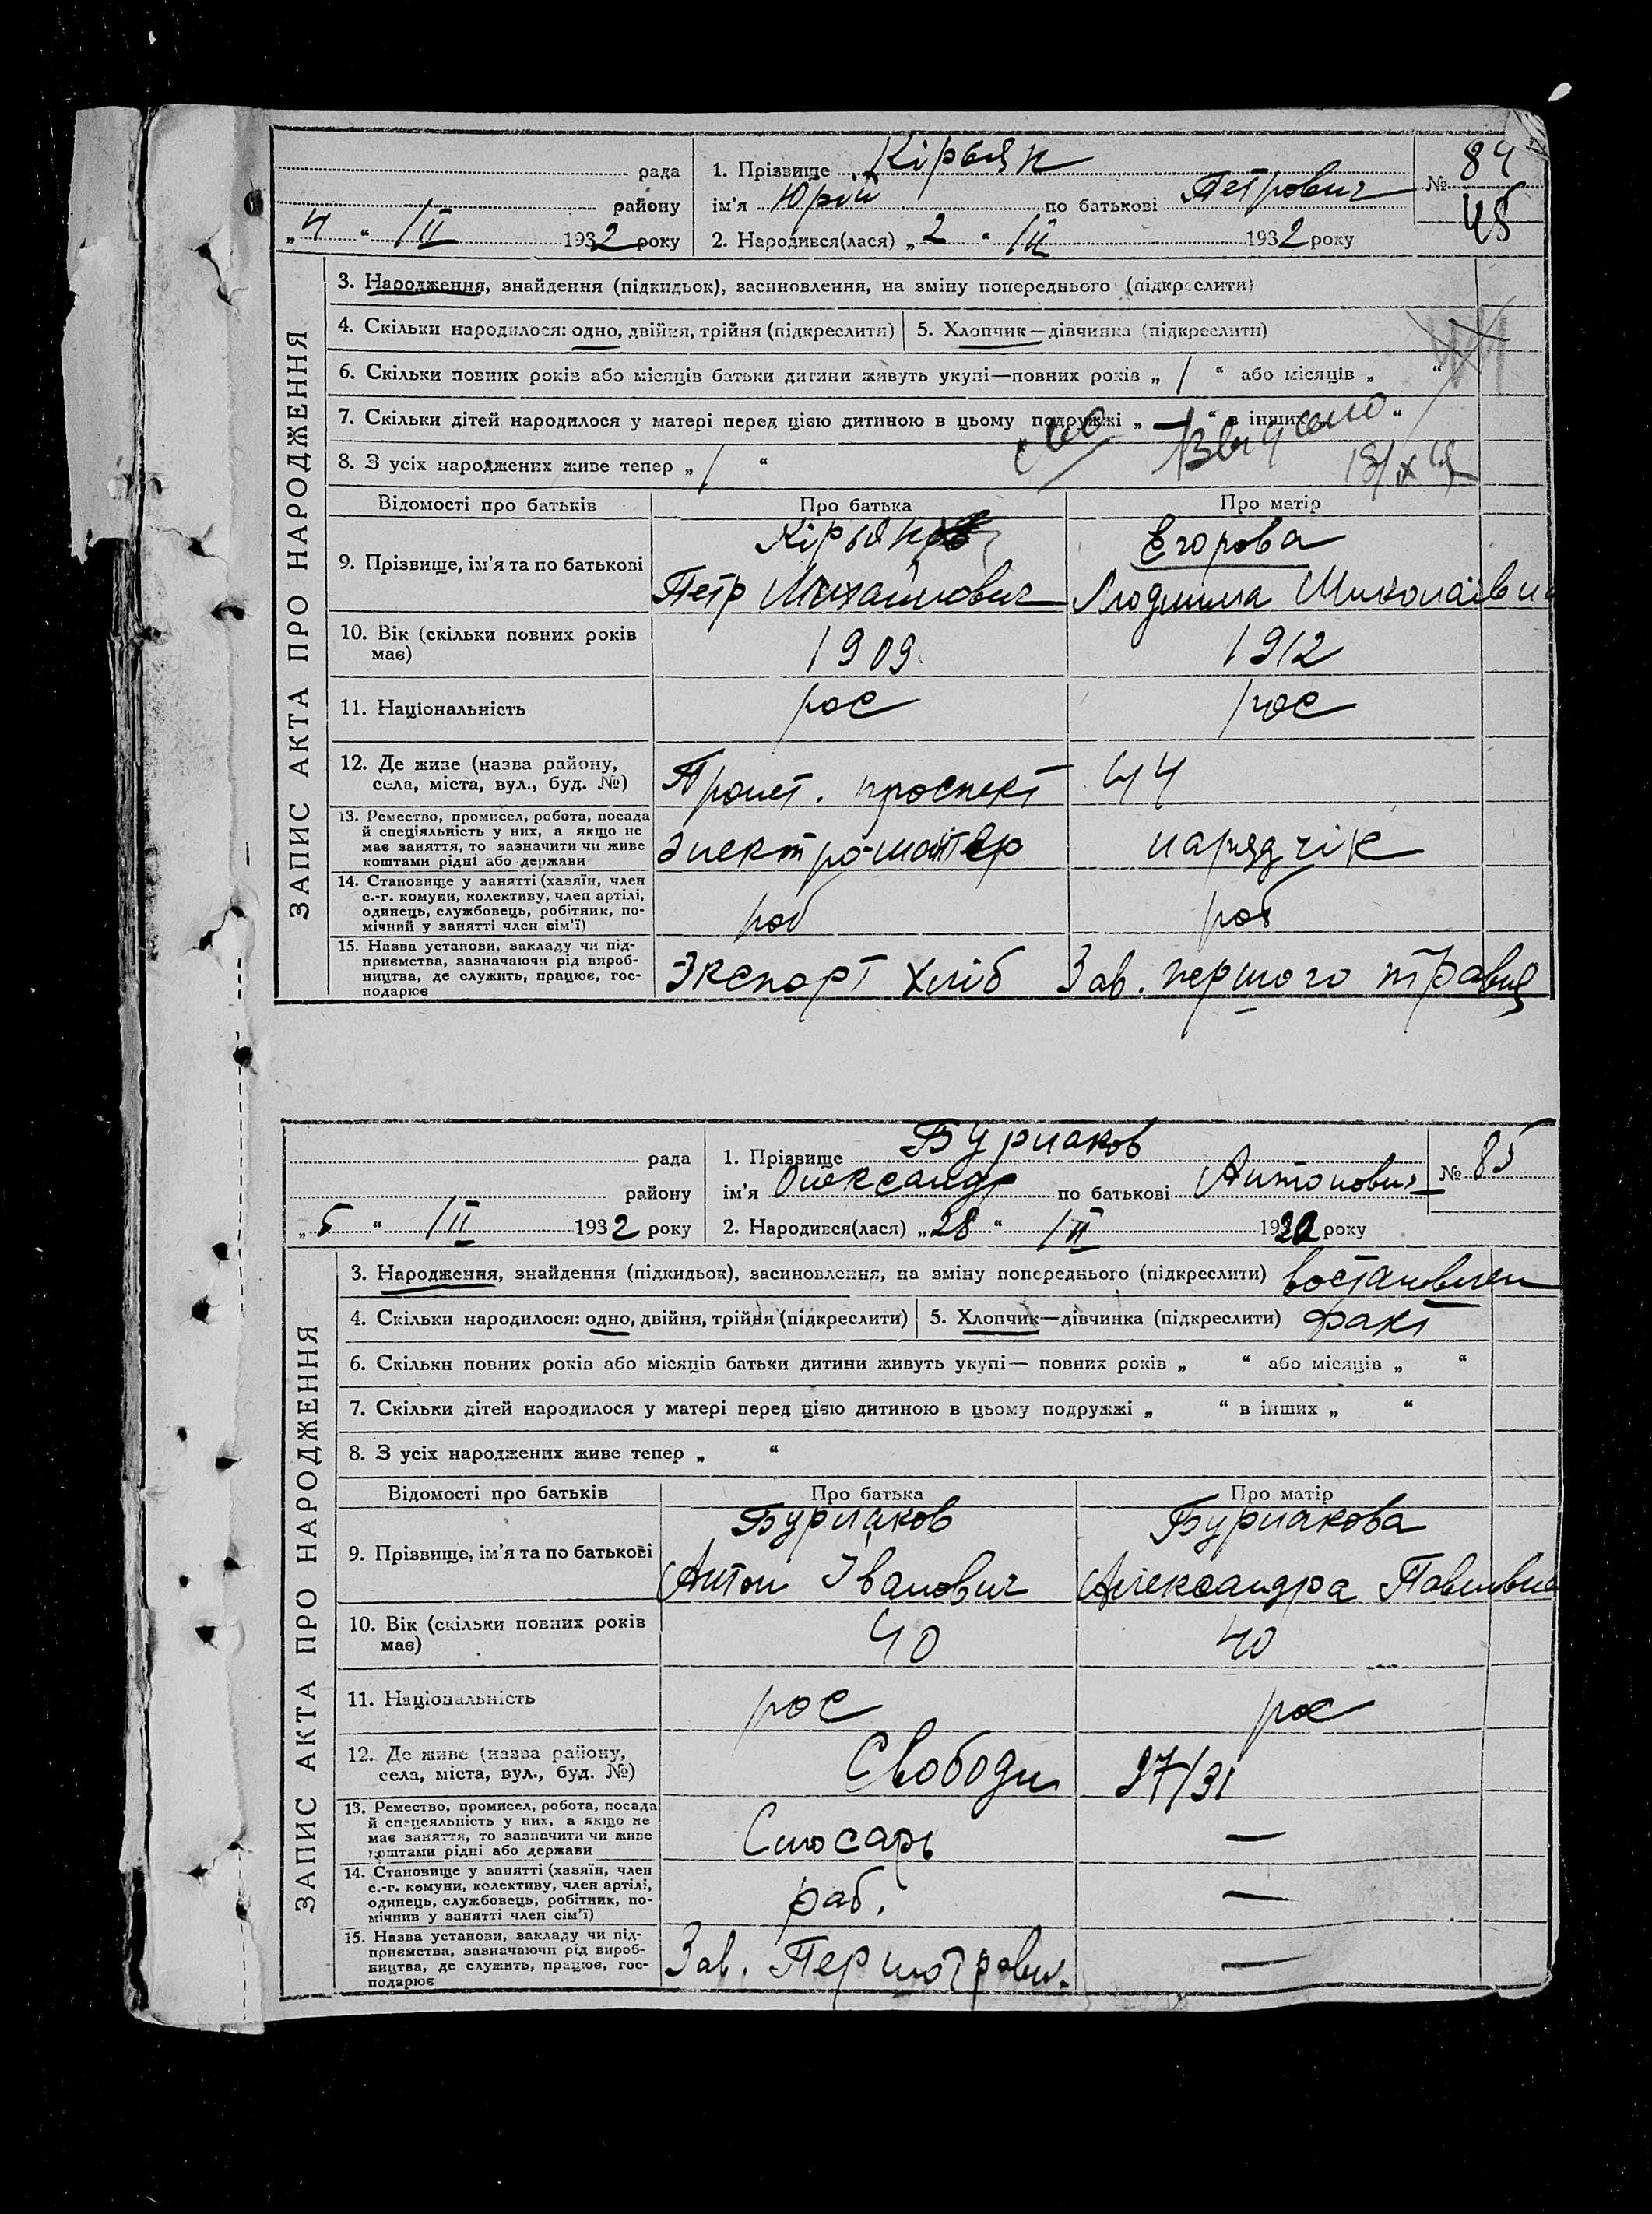 рада
району
„4“ /II 1932 року
1. Прізвище Кірьян
ім'я Юрій по батькові Петрович
2. Народився(лася) „2“ /II 1932 року
№ 84
45
ЗАПИС АКТА ПРО НАРОДЖЕННЯ
3. Народження, знайдення (підкидьок), засиновлення, на зміну попереднього (підкреслити)
4. Скільки народилося: одно, двійня, трійня (підкреслити)
5. Хлопчик—дівчинка (підкреслити)
6. Скільки повних років або місяців батьки дитини живуть укупі—повних років „ / “ або місяців „ “
7. Скільки дітей народилося у матері перед цією дитиною в цьому подружжі „ — “ в інших „ “
8. З усіх народжених живе тепер „ / “
Відомості про батьків
Про батька
Про матір
9. Прізвище, ім'я та по батькові
Кірьян
Петр Михайлович
Егорова
Людмила Миколаівна
10. Вік (скільки повних років
має)
1909
1912
11. Національність
рос
рос
12. Де живе (назва району,
села, міста, вул., буд. №)
Пролет. проспект 44
13. Ремество, промисел, робота, посада
й спеціяльність у них, а якщо не
має заняття, то зазначити чи живе
коштами рідні або держави
электро-монтер
нарядчік
14. Становище у занятті (хазяїн, член
с.-г. комуни, колективу, член артілі,
одинець, службовець, робітник, по-
мічний у занятті член сім'ї)
роб
роб
15. Назва установи, закладу чи під-
приємства, зазначаючи рід вироб-
ництва, де служить, працює, гос-
подарює
Экспорт хліб
Зав. першого травня
рада
району
„5“ /II 1932 року
1. Прізвище Бурлаков
ім'я Олександр по батькові Антонович
2. Народився(лася) „28“ /II
року
№ 85
ЗАПИС АКТА ПРО НАРОДЖЕННЯ
3. Народження, знайдення (підкидьок), засиновлення, на зміну попереднього (підкреслити) востановлен
4. Скільки народилося: одно, двійня, трійня (підкреслити)
5. Хлопчик—дівчинка (підкреслити) факт
6. Скільки повних років або місяців батьки дитини живуть укупі— повних років „ “ або місяців „ “
7. Скільки дітей народилося у матері перед цією дитиною в цьому подружжі „ “ в інших „ “
8. З усіх народжених живе тепер „ “
Відомості про батьків
Про батька
Про матір
9. Прізвище, ім'я та по батькові
Бурлаков
Антон Іванович
Бурлакова
Александра Павловна
10. Вік (скільки повних років
має)
40
40
11. Національність
рос
рос
12. Де живе (назва району,
села, міста, вул., буд. №)
Свободи 27/31
13. Ремество, промисел, робота, посада
й спецеяльність у них, а якщо не
має заняття, то зазначити чи живе
коштами рідні або держави
Слюсарь
—
14. Становище у занятті (хазяїн, член
с.-г. комуни, колективу, член артілі,
одинець, службовець, робітник, по-
мічнив у занятті член сім'ї)
раб.
—
15. Назва установи, закладу чи під-
приємства, зазначаючи рід вироб-
ництва, де служить, працює, гос-
подарює
Зав. Першотравн.
—